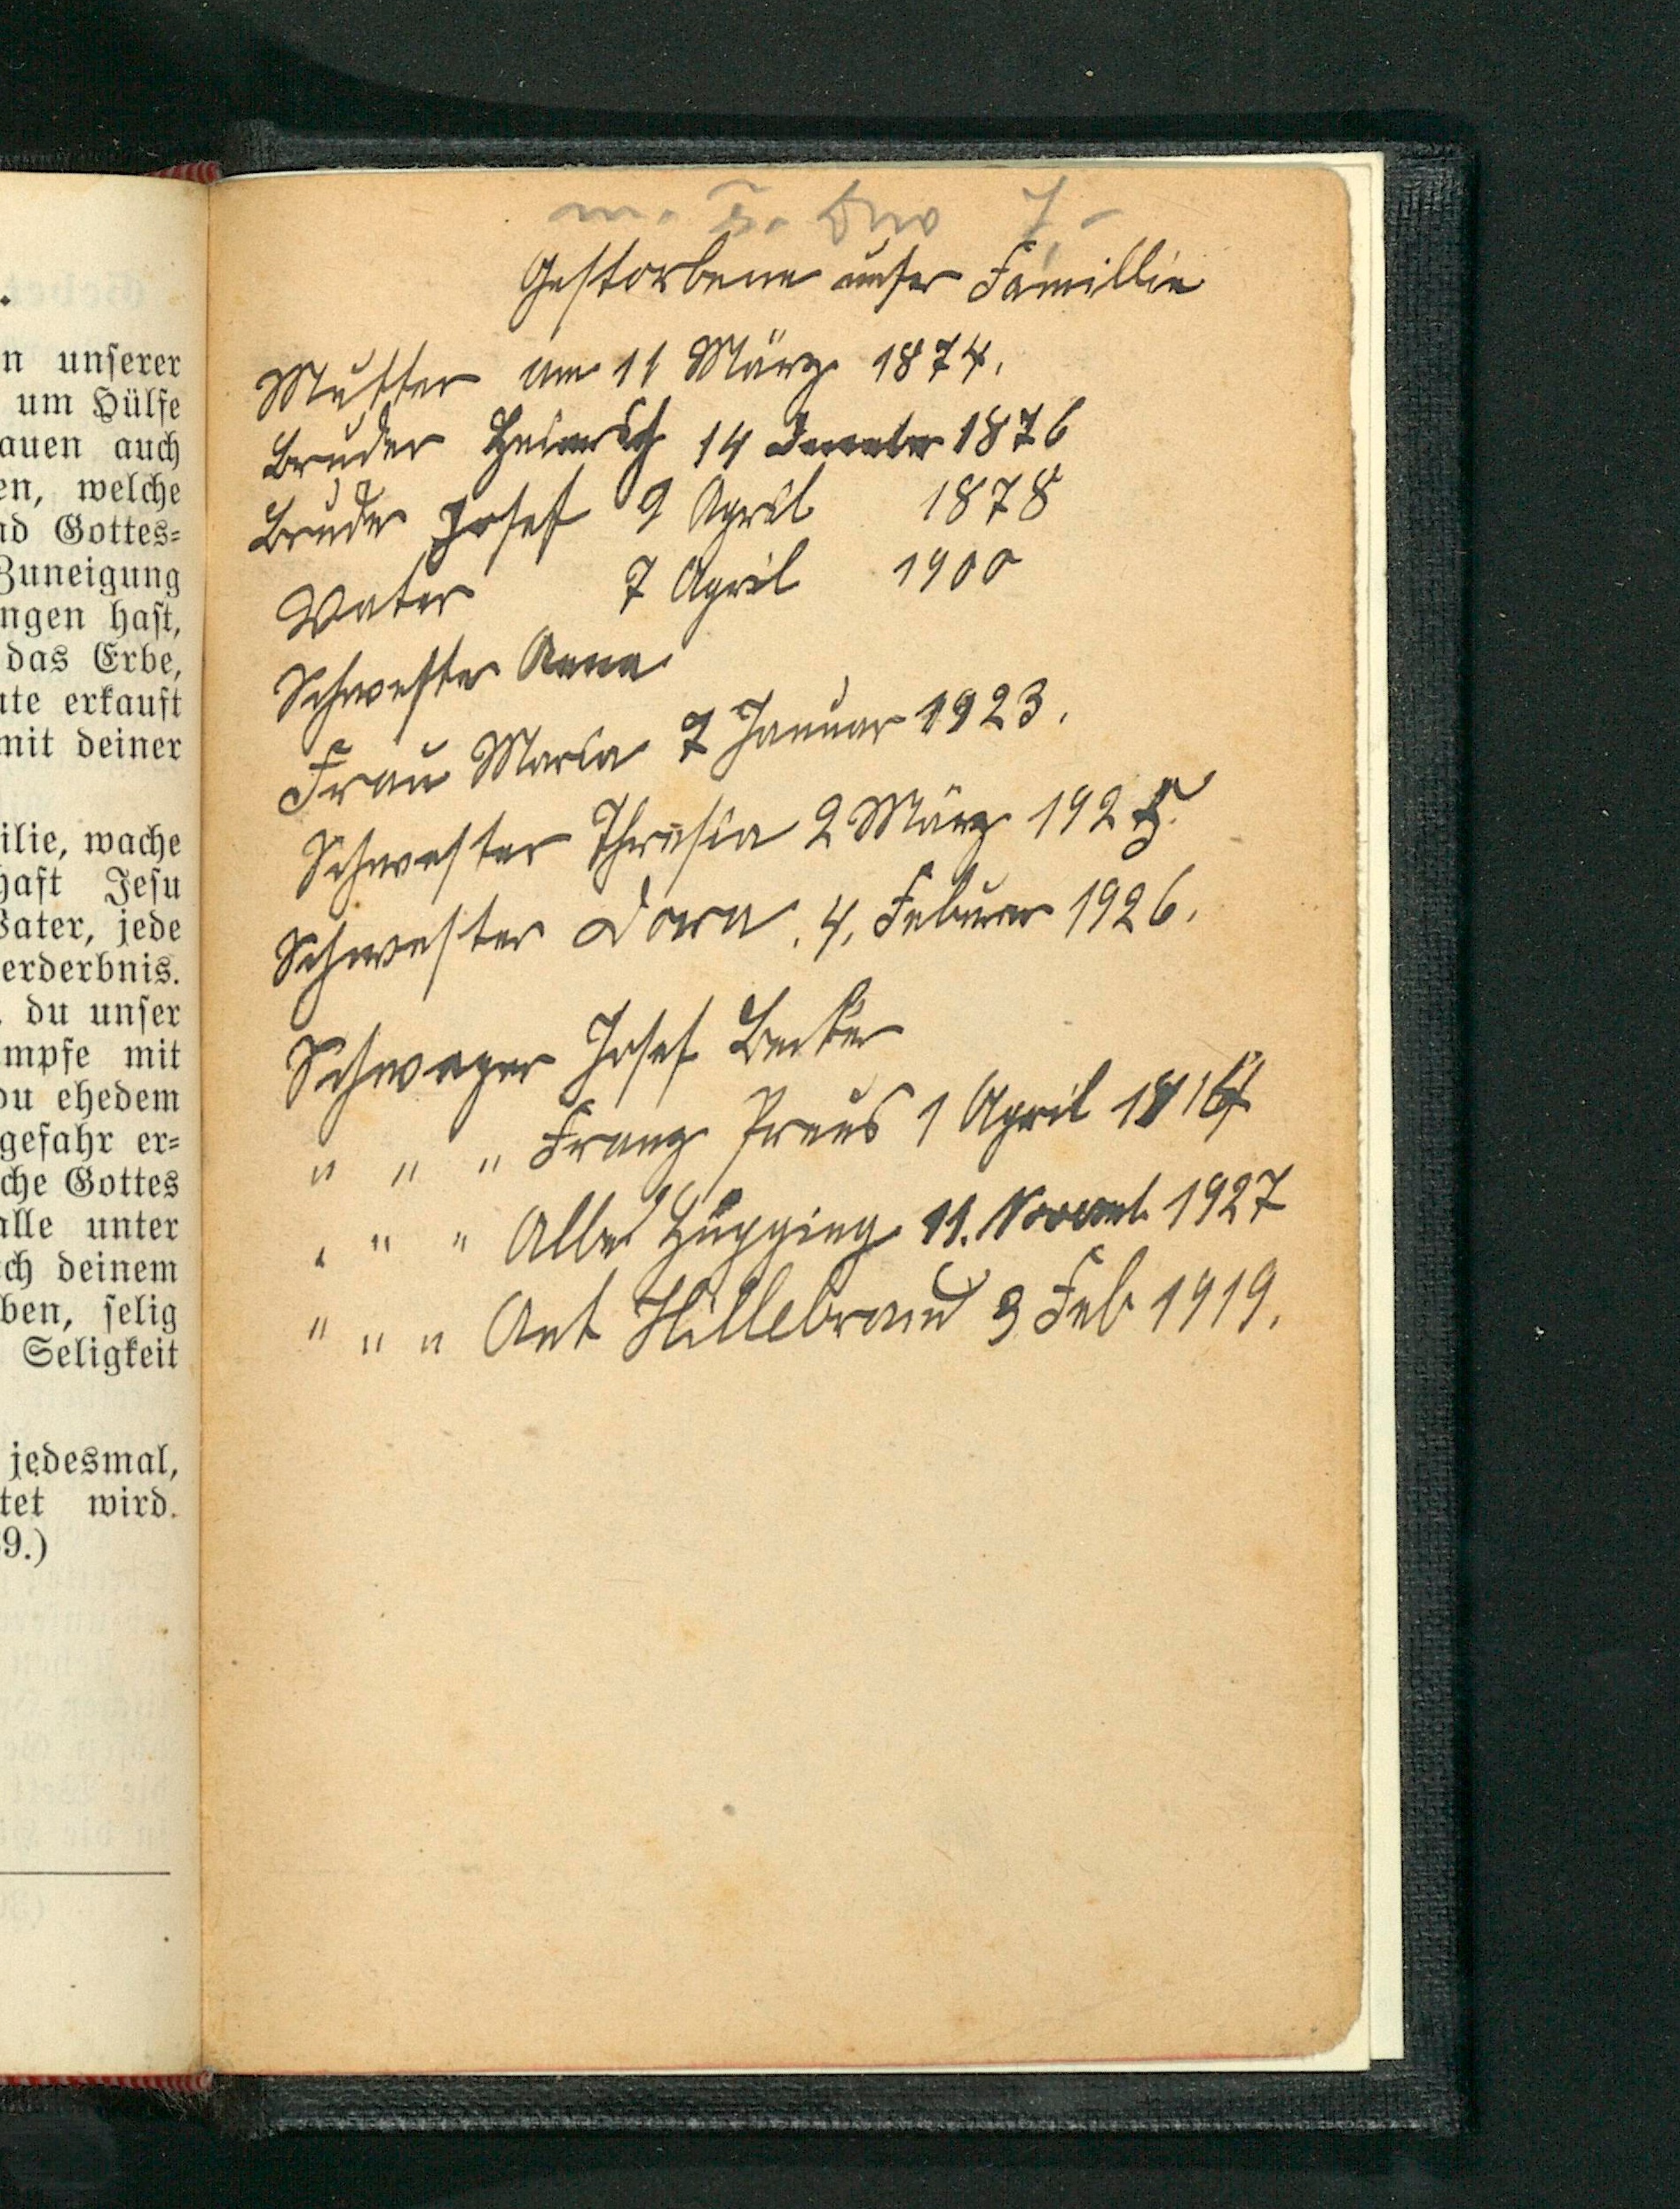 .
n unserer
um Hülfe
auen auch
en, welche
nd Gottes-
Zuneigung
ngen hast,
das Erbe,
ute erkauft
mit deiner
ilie, wache
haft Jesu
Vater, jede
erderbnis.
du unser
mpfe mit
du ehedem
gefahr er-
che Gottes
alle unter
ch deinem
ben, selig
Seligkeit
jedesmal,
tet wird.
9.)
Gestorbene unser Famillie
Mutter am 11 März 1874.
Bruder Heinrich 14 1876
Bruder Josef 9 April 1878
Vater 7 April 1900
Schwester Anna
Frau Maria 7 Januar 1923.
Schwester Thresia 2 März 1925.
Schwester Dora. 4. Februar 1926.
Schwager Josef Becker
" " " Franz Preus 1 April
" " " Albe Hüpping 11. Novemb. 1927
" " " Ant Hillebrand 3 Feb 1919.